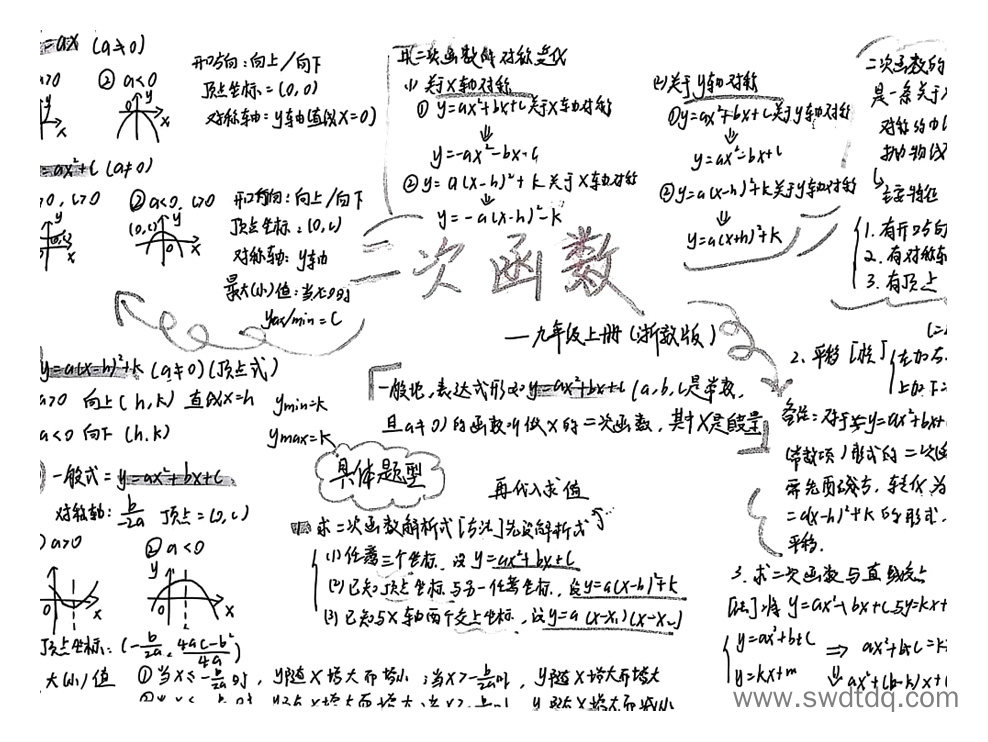 =ax (a≠0)
a>0 ② a<0
开口方向:向上/向下
顶点坐标:=(0,0)
对称轴:y轴(直线X=0)
=ax²+c (a≠0)
>0, c>0 ②a<0, c>0
(0,c)
开口方向:向上/向下
顶点坐标:(0,c)
对称轴:y轴
最大(小)值:当x=0时
ymax/min=c
y=a(x-h)²+k (a≠0)(顶点式)
a>0 向上(h,k) 直线x=h
ymin=k
a<0 向下(h,k)
ymax=k
一般式=y=ax²+bx+c
对称轴:b/-2a 顶点=(0,c)
a>0 ②a<0
顶点坐标:(-b/2a, 4ac-b²/4a)
大(小)值 ①当x≤-b/2a时,y随X增大而增小;当x>-b/2a时,y随x增大而增大
求二次函数解析式对称变化
(1)关于X轴对称
①y=ax²+bx+c关于X轴对称
⇓
y=-ax²-bx-c
②y=a(x-h)²+k关于X轴对称
⇓
y=-a(x-h)²-k
(2)关于y轴对称
①y=ax²+bx+c关于y轴对称
⇓
y=ax²-bx+c
②y=a(x-h)²+k关于y轴对称
⇓
y=a(x+h)²+k
二次函数的
是一条关于
对称的曲
抛物线
主要特征
1.有开口方向
2.有对称轴
3.有顶点
二次函数
—九年级上册(浙教版)
一般地,表达式形如y=ax²+bx+c (a,b,c是常数,
且a≠0)的函数叫做x的二次函数,其中X是自变量
具体题型
再代入求值
求二次函数解析式[方法]先设解析式
(1)任意三个坐标,设y=ax²+bx+c
(2)已知顶点坐标与另一任意坐标,设y=a(x-h)²+k
(3)已知与X轴两个交点坐标,设y=a(x-x₁)(x-x₂)
2.平移[法]
左加右
上加下
备注:对于y=ax²+bx+
(常数项)形式的二次
需先配分,转化为
=a(x-h)²+k的形式,
平移.
3.求二次函数与直线交点
[法]:将y=ax²+bx+c与y=kx+
y=ax²+bx+c ⇒ ax²+bx+c=k
y=kx+m ⇓ ax²+(b-k)x+
www.swdtdq.com